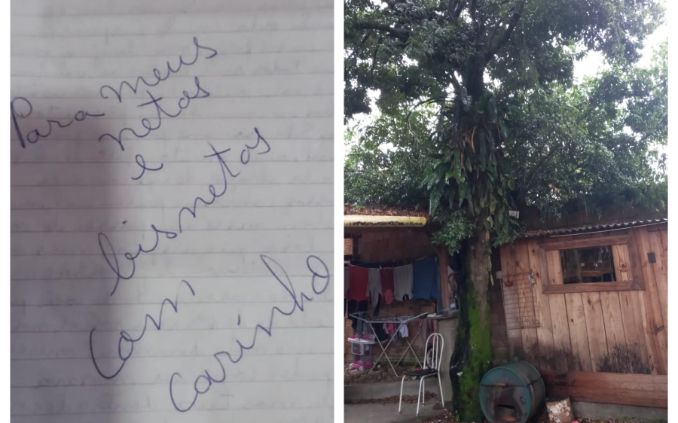 Para meus
netos
e
bisnetos
com
carinho